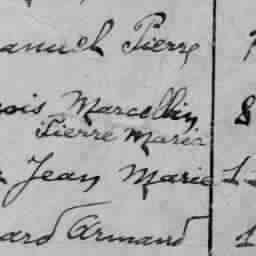 anuel Pierre
ois Marcellin 8
Pierre Marie
Jean Marie 1
ard Armand 1